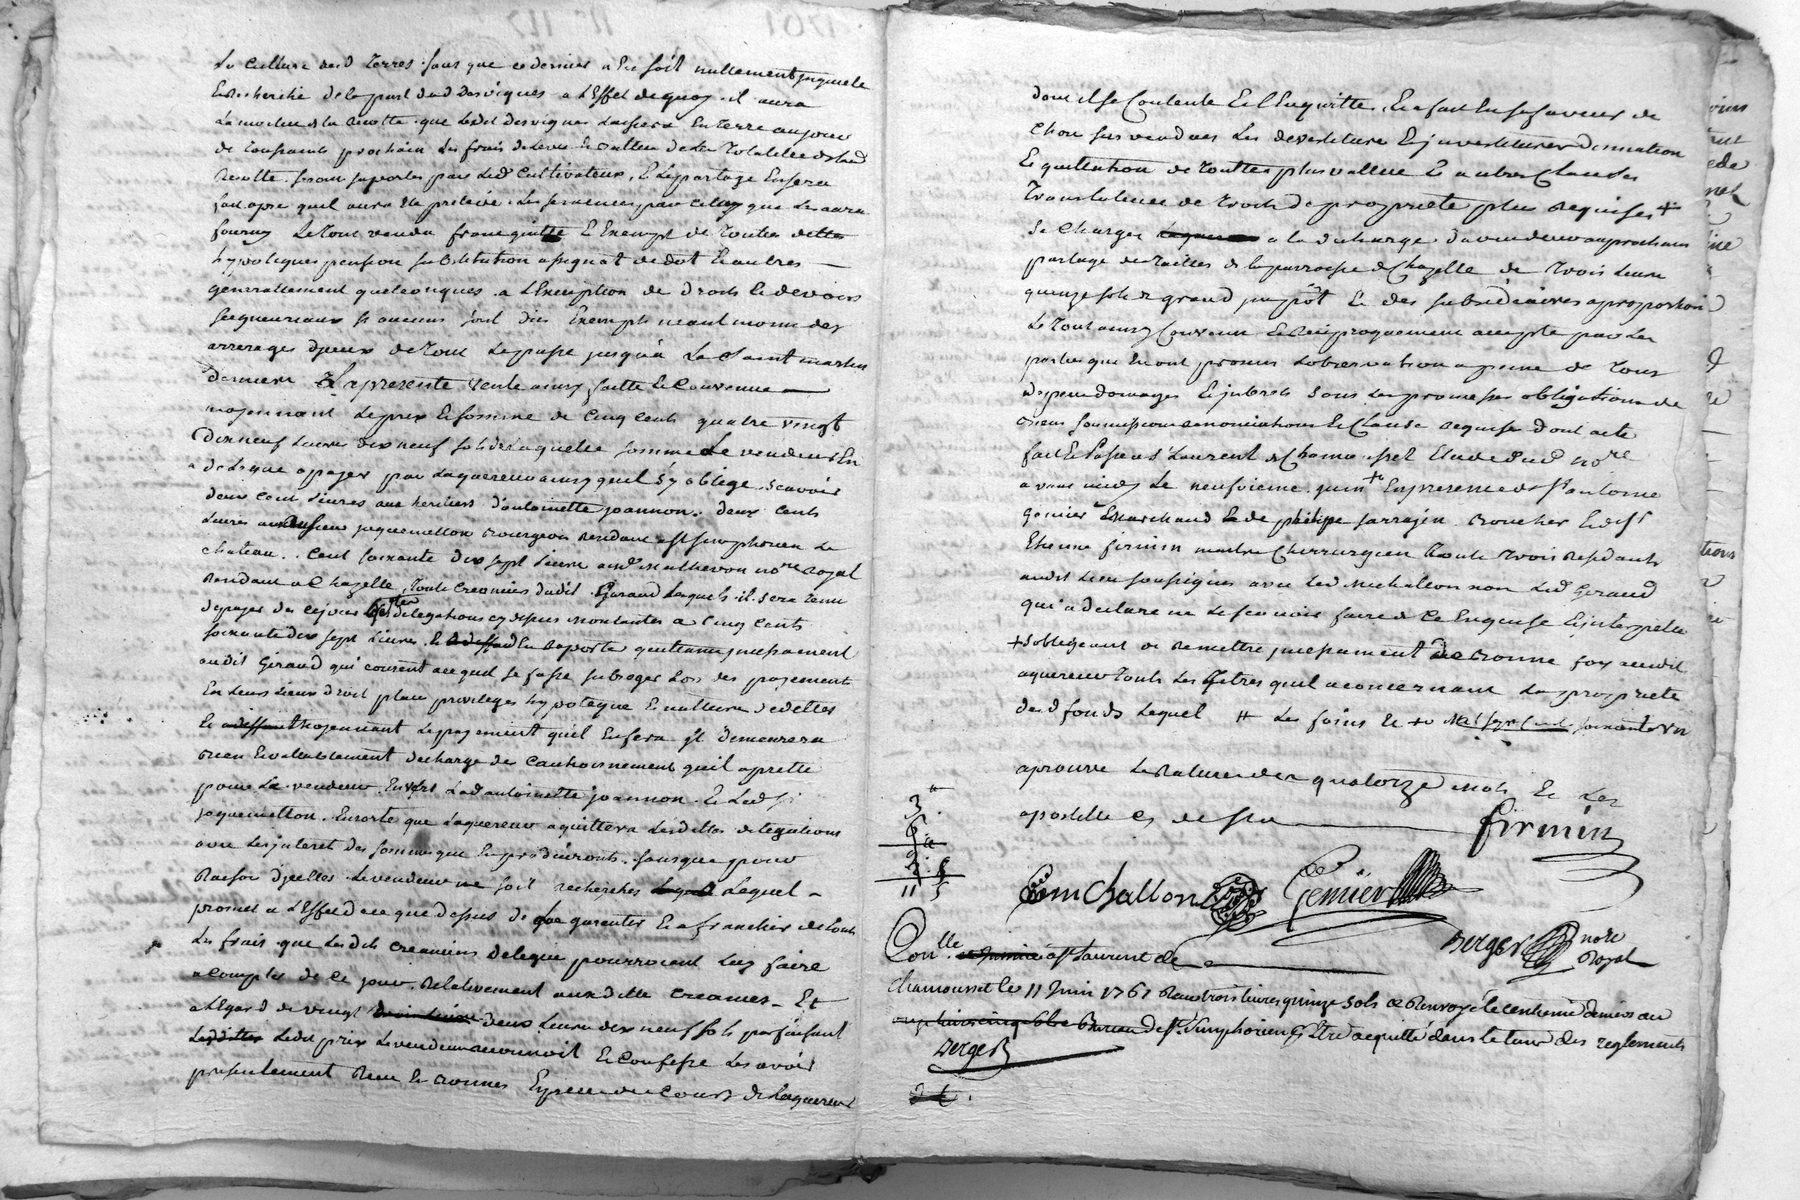 La culture desd terres sans que ce dernier en soit nullement
Recherché de la part dud Desvignes a l'Effet de quoy il aura
La moitié de la Recolte que ledit Desvignes laissera En terre au jour
de Toussaints prochain Les frais de Levée de la Totalité de lad
Recolte seront suportés par Led Cultivateur, Et Le partage En sera
fait apre quil aura été prelevé Les semences par Celuy que Les aura
fourny Le Tout vendu franc quitte Et Exempt de Toutes dettes
hypoteques pension substitution assignat de dot Et autres
generallement quelconques a L'Exemption de Droits Et devoirs
seigneuriaux si aucuns sont dus Exempts neantmoins des
arrerages d'jceux de Tout Le passé jusqu'a La Saint martin
derniere La presente vente ainsy faitte Et Convenue
moyennant Le prix Et somme de Cinq Cents quatre vingt
Dix neuf Livres dix neuf sols de laquelle somme Le vendeur En
a delegué a payer par Laquereur ainsy quil s'y oblige, scavoir
deux cent Livres aux heritiers d'antoinette joannon. deux Cents
Livres jaquemetton Bourgeois Residant a st simphorien Le
chateau. Cent soixante dix sept Livres a Me Matheron nore Royal
Residant a Chazelle, Touts Creanciers dudit Giraud Lesquels il sera Tenu
de payer des ce jour Les delegations cy dessus montantes a Cinq Cents
soixante dix sept Livres Et En Raporter quittance jncessament
audit Giraud qui consent acequil se fasse subroger Lors des payements
En Leurs Lieux droit place privileges hypoteque Et nature de dettes
Et Moyennant Le payement quil En fera il demeurera
Bien Et valablement decharge des Cautionnements quil a prette
pour Le vendeur Envers Lad antoinette joannon Et Led sr
jaquemetton. En sorte que Laquereur aquittera Lesdittes delegations
avec Les jnteret des sommes que Les produiront, sans que pour
Raison d'jcelles Le vendeur ne soit recherchés Lequel
promet a L'Effet de ce que dessus de Le garentir Et afranchir de touts
Les frais que Lesdits Creanciers delegué pourroient Luy faire
a Compter de Ce jour Relativement auxditte Creances. Et
a L'Egard de vingt deux Livres dix neuf sols parfaisant
Ledit prix Le vendeur Reconnoit Et Confesse Les avoir
presentement Receu En Bonnes Especes du Cours de Laquereur
dont il se Contente Et L'En quitte, Et a fait En sa faveur de
Chose sus vendues Les devestiture Et jnvestitures Donnation
Et quittation de Touttes plus vallue Et autres Clauses
Translatives de Droits de proprieté plus Requises +
Se Charger a la decharge du vendeur au prochain
partage de Tailles de la parroisse de Chazelle de Trois Livres
quinze sols de grand jmpôt Et des subsidiaires a proportion
Le Tout ainsy Convenu Et Reciproquement accepté par Les
parties qui En ont promis L'observation a peine de Tous
depens domages Et jnterets sous Les promesses obligations de
Biens soumissions Renonciations Et Clause Requise dont acte
fait Et Passé a St Laurent de Chamousset Etude dud nore
avant midy Le neufvieme juin Et En presence de Sr antoine
Gemier Marchand Et de philipe sarrazin Boucher Et de sr
Etienne firmin maitre Chirurgien Touts Trois Residants
audit Lieu soussignes avec Led Michallon non Led Giraud
qui a declaré ne Le scavoir faire de Ce Enquis Et jnterpellé
+ s'obligeant de Remettre jncessament de Bonne foy audit
aquereur Touts Les Titres quil a concernant La proprieté
desd fonds Lequel # Les foins Et ++ Mil sept Cents soixante un
aprouvé La Rature de quatorze mots Et Les
apostille cy dessus
firmin
Michallon Gemier
Berger nore Royal
3#
6
11 5
Conllé a St Laurent de
Chamousset le 11 Juin 1761 Recu trois livres quinze sols & Renvoyé le centieme denier au
Bureau de St Simphorien p Etre acquitté dans le tems des reglements
Berger